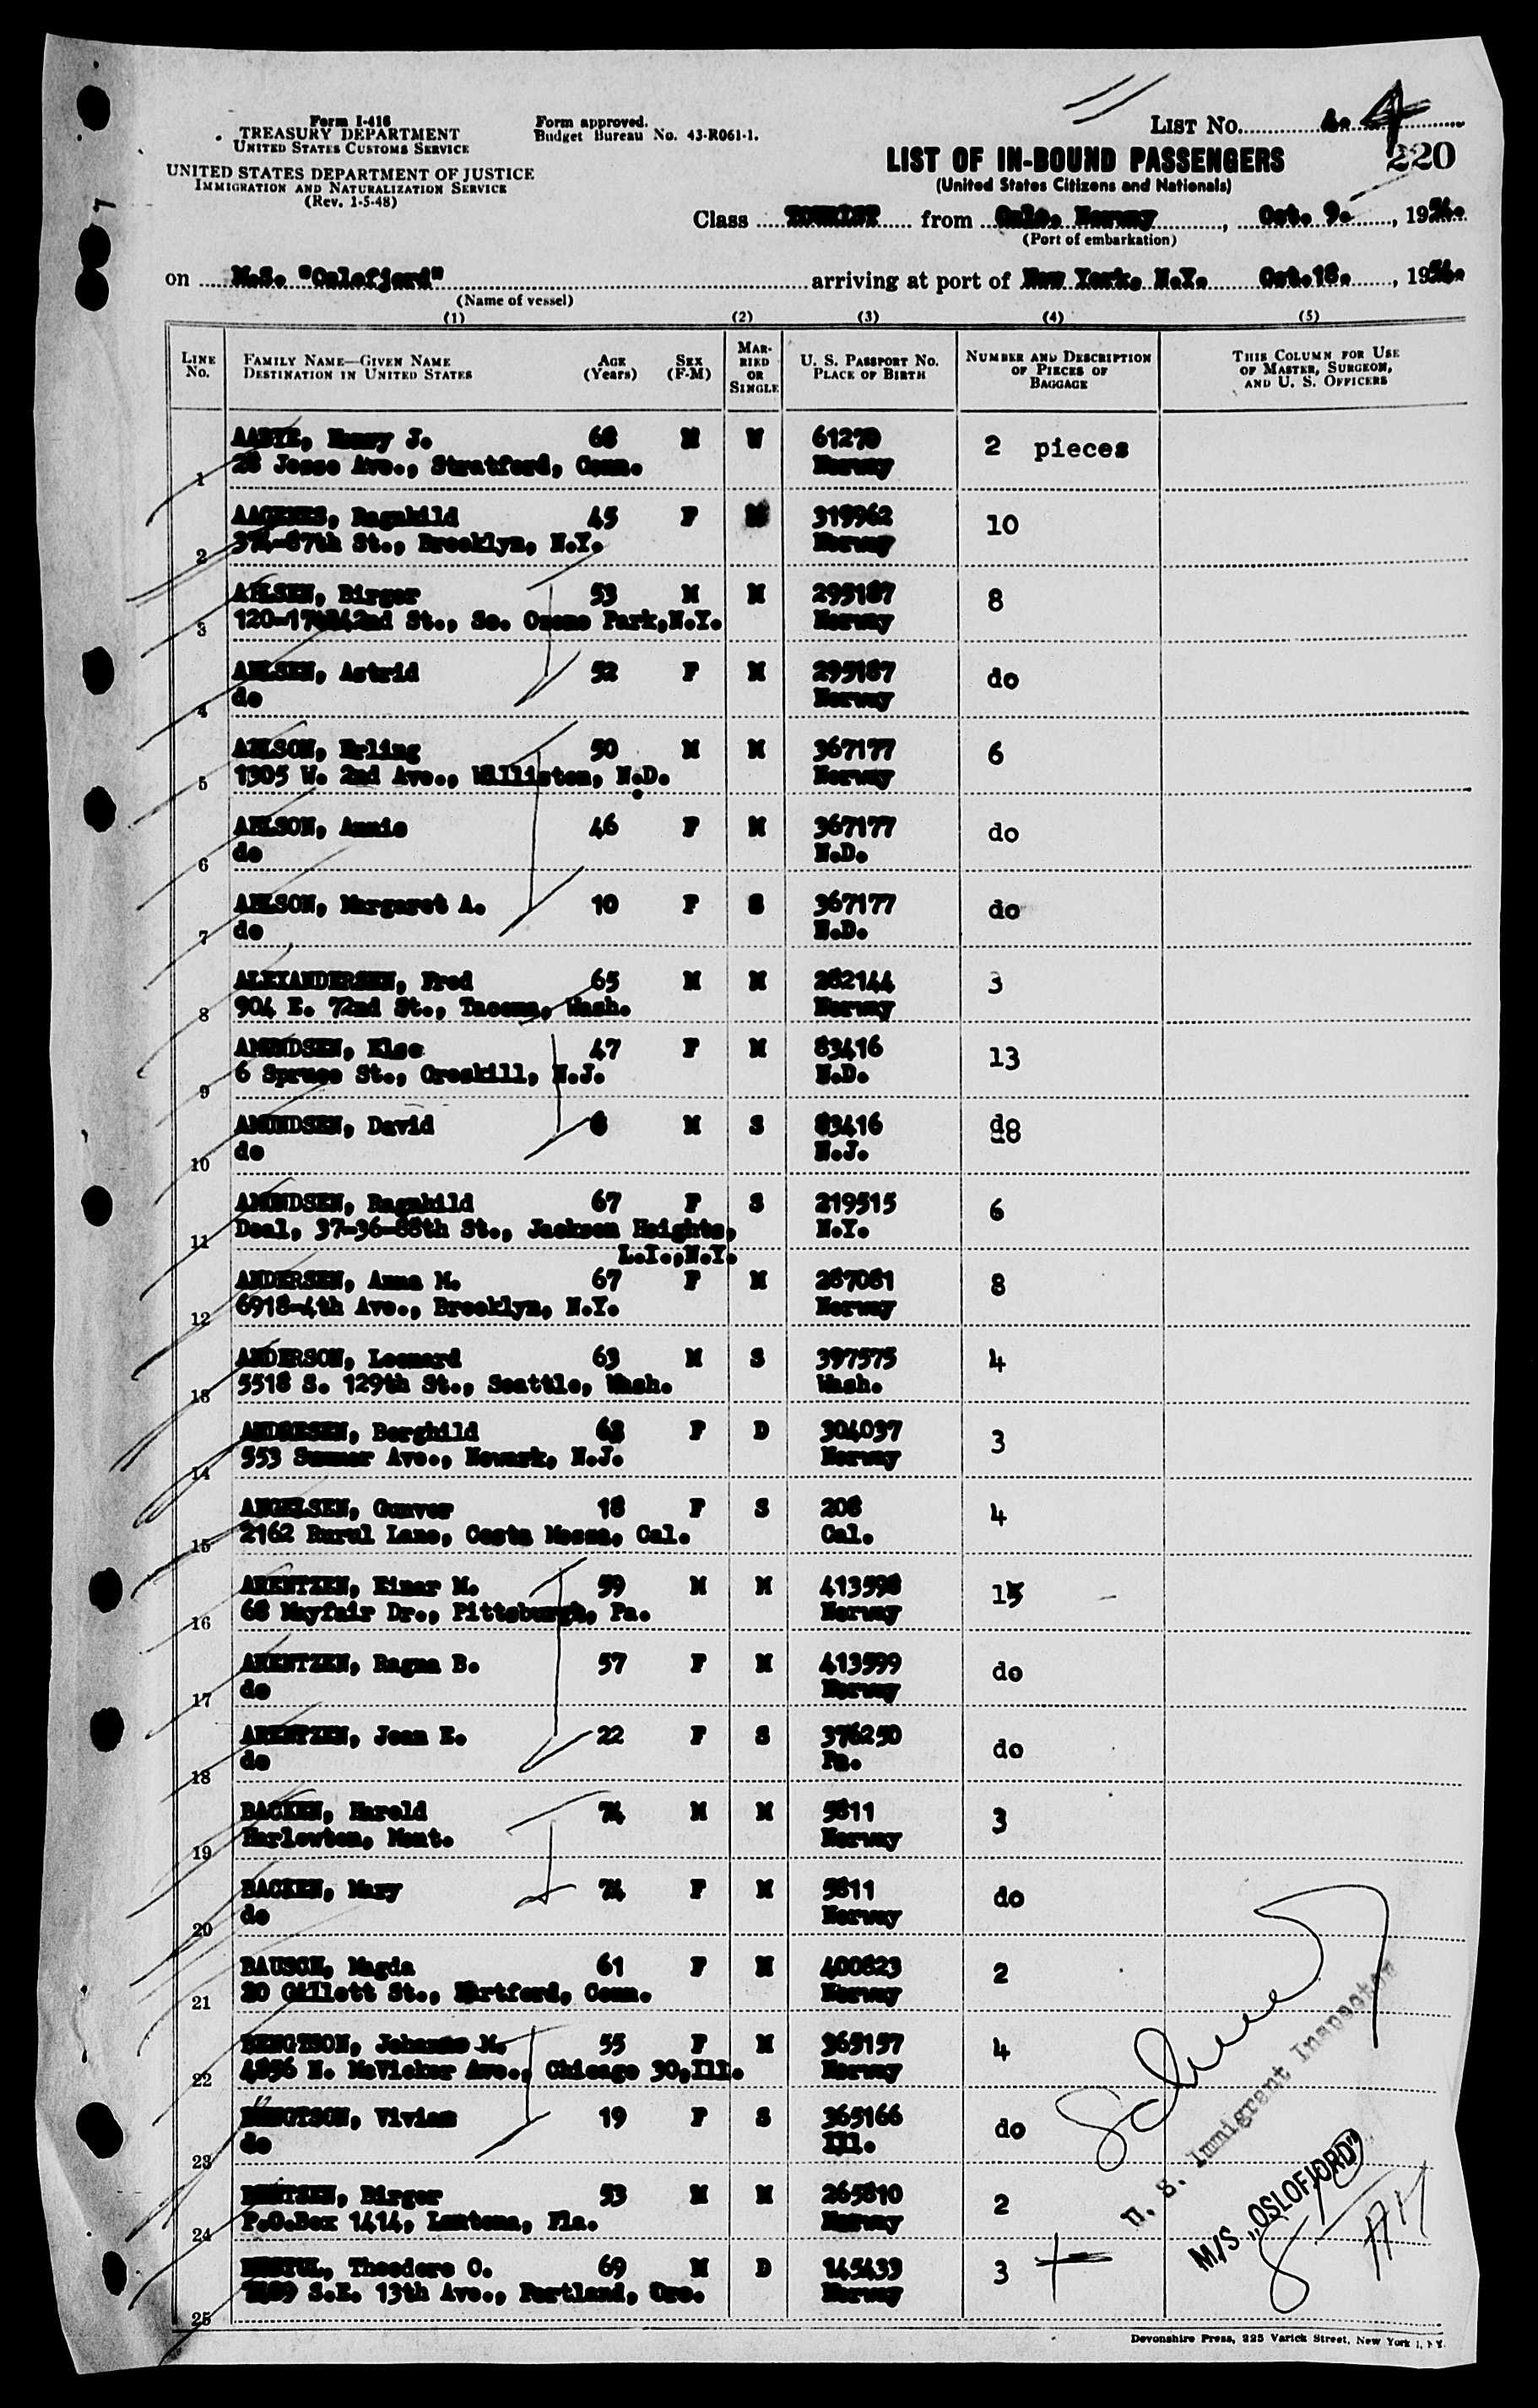 Form I-418
TREASURY DEPARTMENT
UNITED STATES CUSTOMS SERVICE
UNITED STATES DEPARTMENT OF JUSTICE
IMMIGRATION AND NATURALIZATION SERVICE
(Rev. 1-5-48)
Form approved.
Budget Bureau No. 43-R061-1.
LIST No. 4
LIST OF IN-BOUND PASSENGERS
220
(United States Citizens and Nationals)
Class TOURIST from Oslo, Norway, Oct. 9. , 1954.
(Port of embarkation)
on M.S. "Oslofjord" arriving at port of New York. N.Y. Oct.18. , 1954.
(Name of vessel)
(1) (2) (3) (4) (5)
LINE No. FAMILY NAME—GIVEN NAME DESTINATION IN UNITED STATES AGE (Years) SEX (F-M) MARRIED OR SINGLE U. S. PASSPORT NO. PLACE OF BIRTH NUMBER AND DESCRIPTION OF PIECES OF BAGGAGE THIS COLUMN FOR USE OF MASTER, SURGEON, AND U. S. OFFICERS
AABYE, Henry J. 68 M W 61270 2 pieces
1 28 Jesse Ave., Stratford, Conn. Norway
AAGENES, Ragnhild 45 F M 319962 10
2 374-87th St., Brooklyn, N.Y. Norway
3 AHLSEN, Birger 53 M M 295187 8
St., So. Ozone Park,N.Y. Norway
AHLSEN, Astrid 52 F M 295187 do
4 do Norway
Erling 50 M M 367177 6
5 1305 W. 2nd Ave., Williston, N.D. Norway
Annie 46 F M 367177 do
6 do N.D.
Margaret A. 10 F S 367177 do
7 do N.D.
ALEXANDERSEN, Fred 65 M M 282144 3
8 904 E. 72nd St., Tacoma, Wash. Norway
AMUNDSEN, Else 47 F M 83416 13
9 6 Spruce St., Creskill, N.J. N.D.
AMUNDSEN, David M S 83416 do
10 do N.J.
AMUNDSEN, Ragnhild 67 F S 219515 6
11 Deal, 37-36-88th St., Jackson Heights, N.Y.
L.I.,N.Y.
ANDERSEN, Anna M. 67 F M 287081 8
12 6918-4th Ave., Brooklyn, N.Y. Norway
ANDERSON, Leonard 63 M S 397575 4
13 5518 S. 129th St., Seattle, Wash. Wash.
ANDRESEN, Borghild 68 F D 304037 3
14 553 Summer Ave., Newark, N.J. Norway
ANGELSEN, Gunvor 18 F S 208 4
15 2162 Rurul Lane, Costa Messa, Cal. Cal.
ARENTZEN, Einar M. 59 M M 413598 15
16 68 Mayfair Dr., Pittsburgh, Pa. Norway
ARENTZEN, Ragna B. 57 F M 413599 do
17 do Norway
ARENTZEN, Jean E. 22 F S 376250 do
18 do Pa.
BACKEN, Harold 74 M M 5811 3
19 Harlowton, Mont. Norway
BACKEN, Mary 74 F M 5811 do
20 do Norway
BAUSCH, Magda 61 F M 400823 2
21 20 Gillett St., Hartford, Conn. Norway
BENGTSON, Johanne M. 55 F M 365157 4
22 4856 N. McVicker Ave., Chicago 30,Ill. Norway
BENGTSON, Vivian 19 F S 365166 do
23 do Ill.
BERTSEN, Birger 53 M M 265810 2
24 P.O.Box 1414, Lantana, Fla. Norway
Theodore O. 69 M D 145433 3
25 S.E. 13th Ave., Portland, Ore. Norway
U. S. Immigrant Inspector
M/S „OSLOFJORD"
Devonshire Press, 225 Varick Street, New York 1, N.Y.